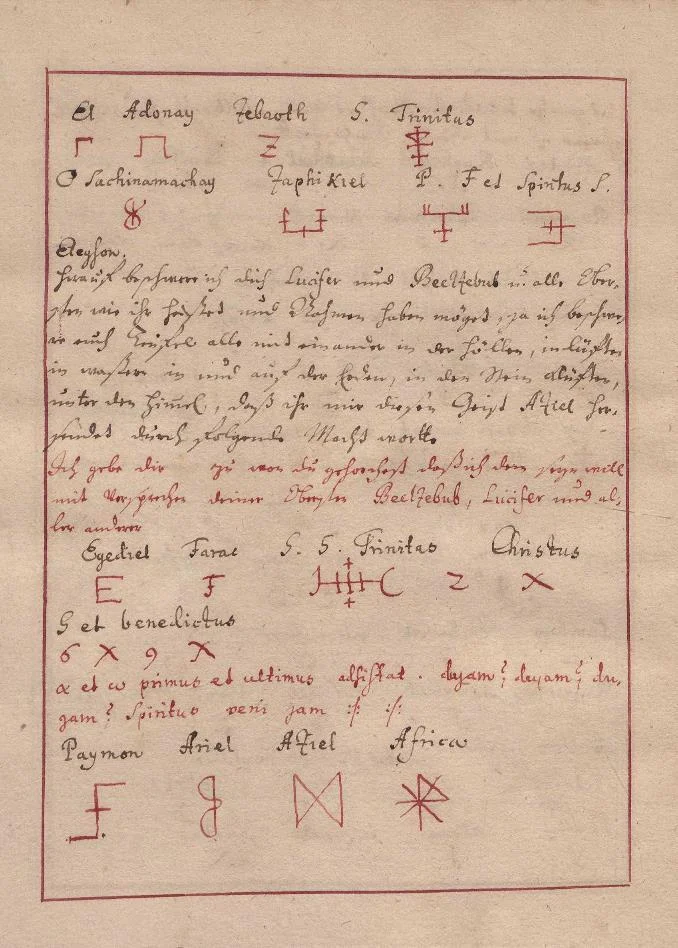 El Adonay Zebaoth S. Trinitus
O Sachinamachay Zaphikiel P. F et Spiritus S.
Aeyson.
Herauf beschwere ich dich Lucifer und Beeltzebub u. alle Ober-
sten wie ihr heißet und Nahmen haben möget, ja ich beschwe-
re euch Teuffel alle mit einander in der Höllen, in lüfften
in waßern in und auf der Erden, in den Stein Klüfften,
unter den Himel, daß ihr mir diesen Geist Aziel her-
sendet durch folgende Macht worte
Ich gebe dir zu wor du gehorchest daß ich dein seyn will
mit versprechen deiner Obersten Beeltzebub, Lucifer und al-
ler anderer
Egediel Farac S. S. Trinitas Christus
E F Z X
S et benedictus
6 X 9 X
α et ω primus et ultimus adsistat .
Spiritus veni jam
Paymon Ariel Aziel Africa